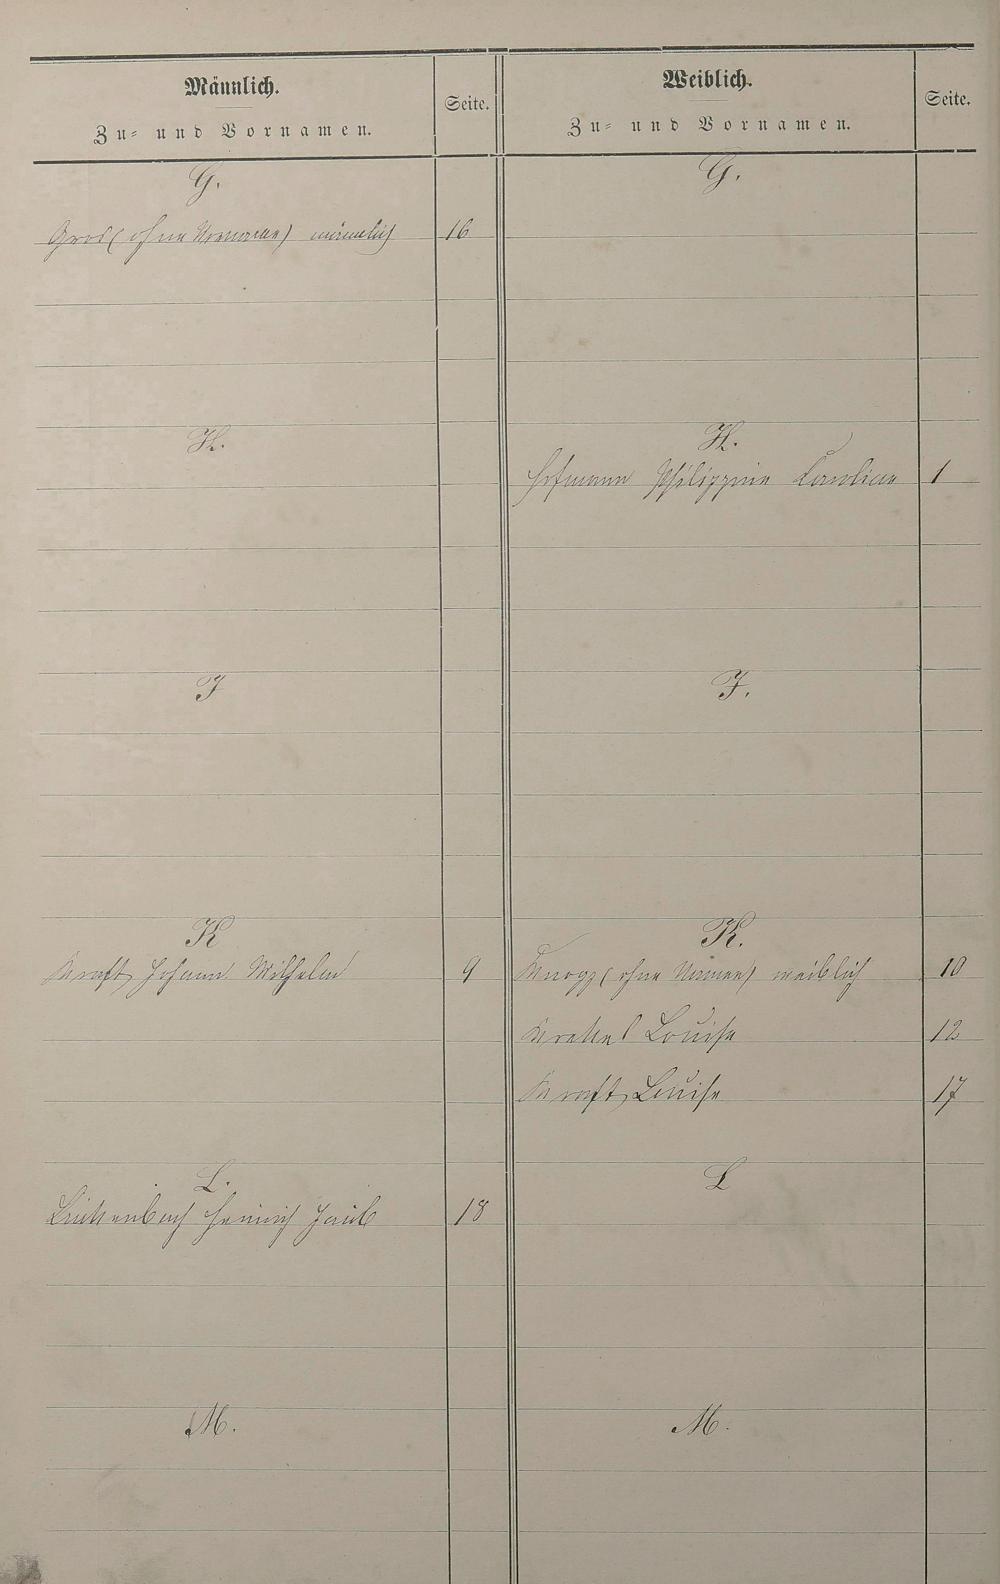 Männlich.
Zu= und Vornamen.
Seite.
Weiblich.
Zu= und Vornamen.
Seite.
G.
G.
Gros (ohne Vorname) männlich 16
H.
H.
Hofmann Philippine Caroline 1
J
J.
K
K.
Kraft Johann Wilhelm 9
Knopp (ohne Namen) weiblich 10
Krekel Louise 12
Kraft Louise 17
L.
L
Lückenbach Heinrich Jacob 18
M.
M.